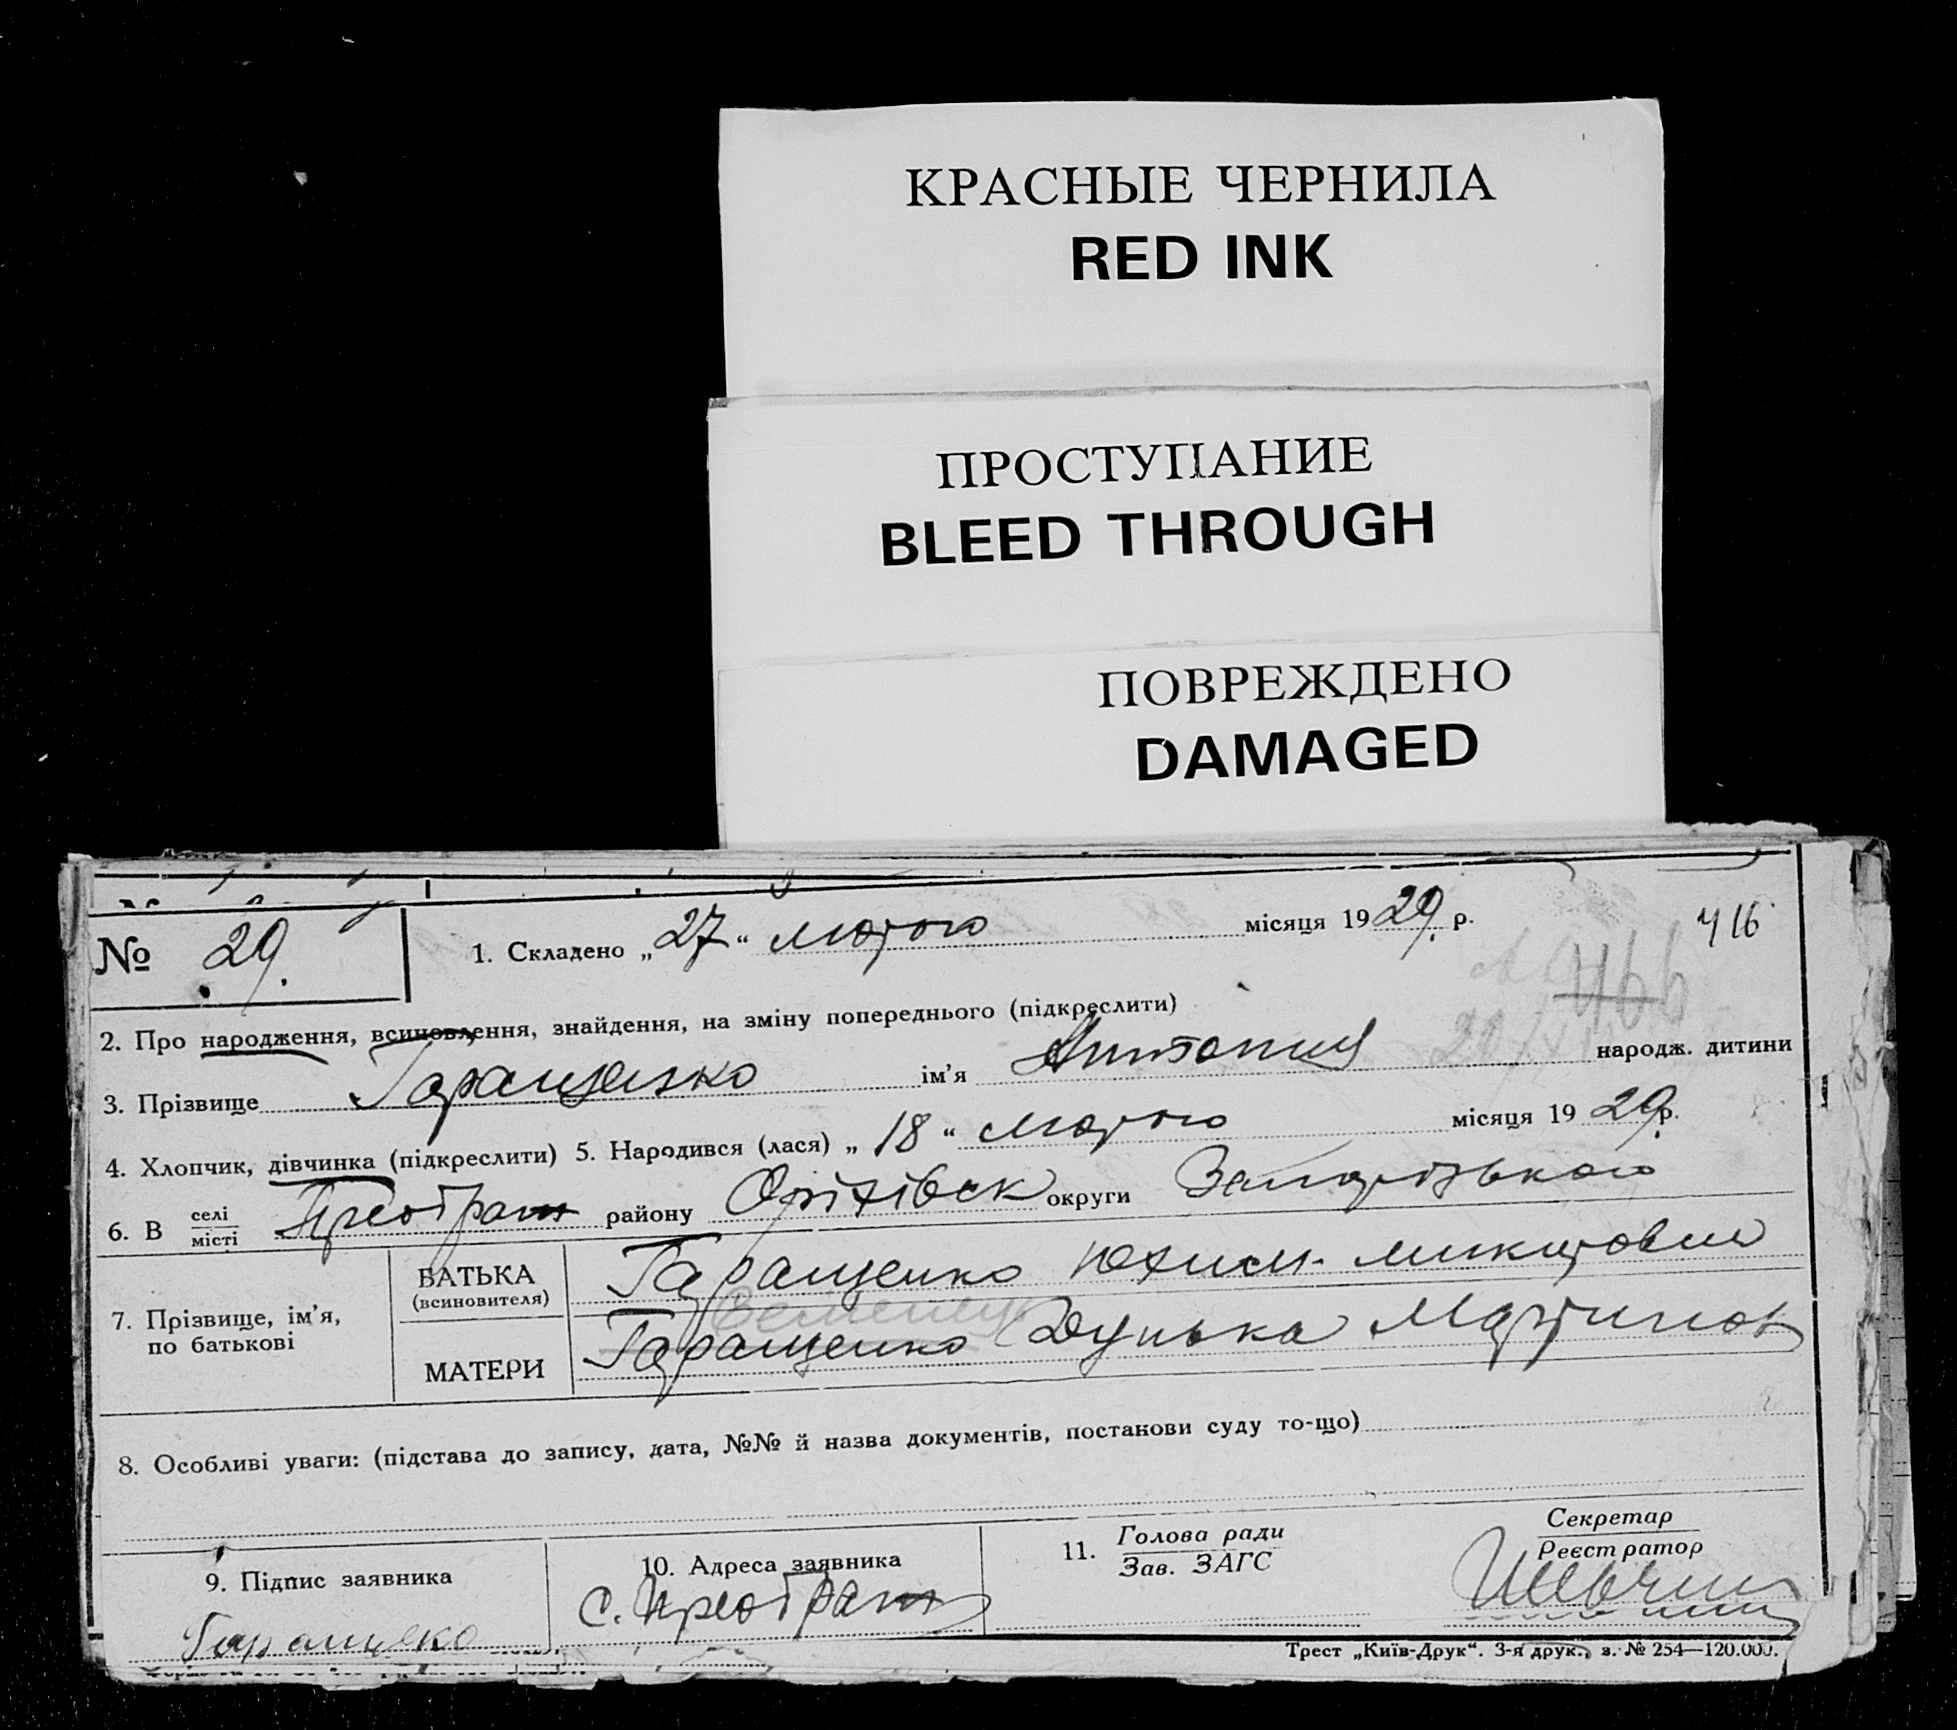 КРАСНЫЕ ЧЕРНИЛА
RED INK
ПРОСТУПАНИЕ
BLEED THROUGH
ПОВРЕЖДЕНО
DAMAGED
№ 29. 1. Складено „27“ лютого місяця 1929. р. 416
466
2. Про народження, всиновлення, знайдення, на зміну попереднього (підкреслити)
3. Прізвище Гаращенко ім'я Антонина народж. дитини
4. Хлопчик, дівчинка (підкреслити) 5. Народився (лася) „18“ лютого місяця 1929 р.
6. В селі місті Преображ району Оріхівськ округи Запорізького
7. Прізвище, ім'я, по батькові
БАТЬКА (всиновителя) Гаращенко Юхим Микитович
МАТЕРИ Гаращенко Дунька Мартинов
8. Особливі уваги: (підстава до запису, дата, №№ й назва документів, постанови суду то-що)
9. Підпис заявника
Гаращенко
10. Адреса заявника
с. Преображ
11. Голова ради
Зав. ЗАГС
Секретар
Реєстратор
Трест „Київ-Друк“. 3-я друк., з. № 254—120.000.